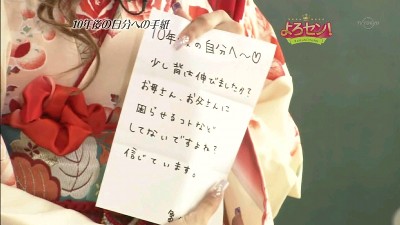 10年後の自分への手紙
よろセン!
10年後の自分へ〜♡
少し背は伸びましたか?
お母さん、お父さんに
困らせるコトなど
してないですよね?
信じています。